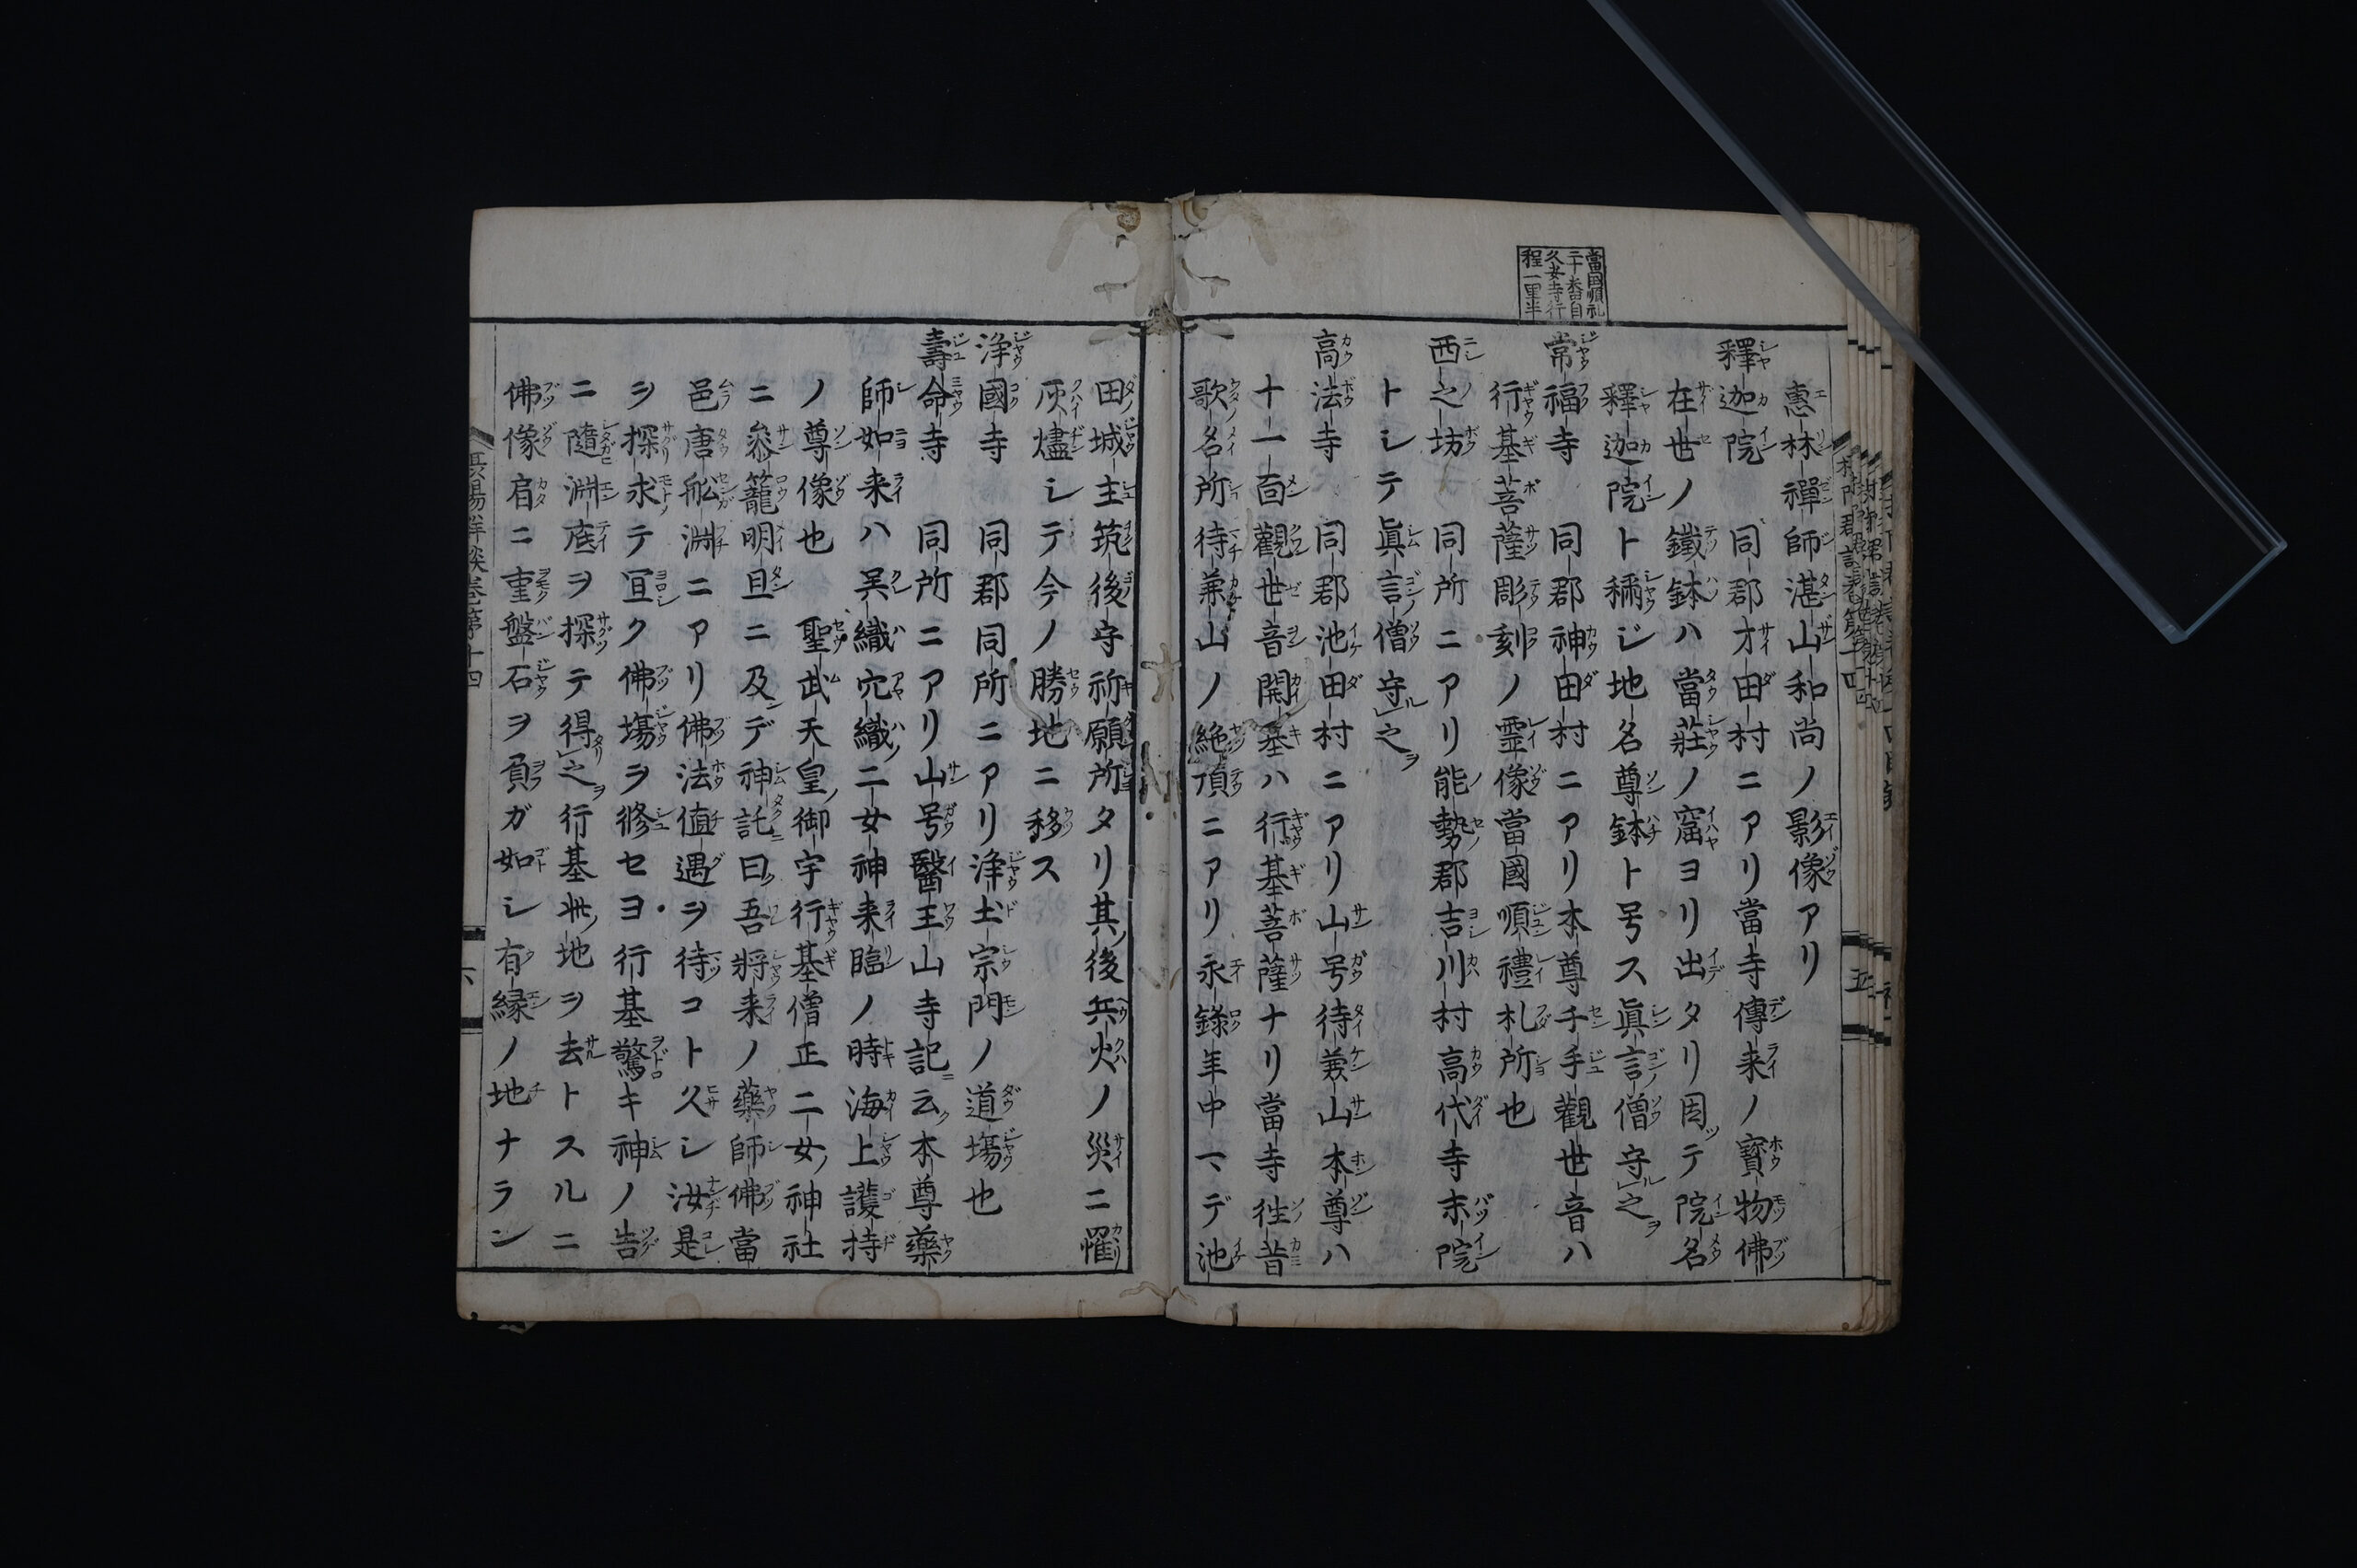 當國順礼
二十番自
久安寺行
程一里半
惠林禪師湛山和尚ノ影像アリ
釋迦院　同郡才田村ニアリ當寺傳来ノ寳物佛
在世ノ鐵鉢ハ當莊ノ窟ヨリ出タリ因ッテ院名
釋迦院ト稱ジ地名尊鉢ト号ス眞言僧守ル之ヲ
常福寺　同郡神田村ニアリ本尊千手觀世音ハ
行基菩薩彫刻ノ霊像當國順禮札所也
西之坊　同所ニアリ能勢郡吉川村高代寺末院
トシテ眞言僧守ル之ヲ
高法寺　同郡池田村ニアリ山号待兼山本尊ハ
十一面觀世音開基ハ行基菩薩ナリ當寺徃昔
歌名所待兼山ノ絶頂ニアリ永録年中マデ池
田城主筑後守祈願所タリ其ノ後兵火ノ災ニ罹
灰燼シテ今ノ勝地ニ移ス
浄國寺　同郡同所ニアリ浄土宗門ノ道場也
壽命寺　同所ニアリ山号醫王山寺記ニ云ク本尊藥
師如来ハ呉織穴織二女神来臨ノ時海上護持
ノ尊像也　聖武天皇ノ御宇行基僧正二女ノ神社
ニ叅籠明旦ニ及ンデ神託ニ曰ク吾將来ノ藥師佛當
邑唐舩淵ニアリ佛法値遇ヲ待コト久シ汝是
ヲ探求テ宜ク佛場ヲ修セヨ行基驚キ神ノ告
ニ隨淵底ヲ探テ得タリ之ヲ行基此ノ地ヲ去トスルニ
佛像肩ニ重盤石ヲ負ガ如シ有縁ノ地ナラン
六
五